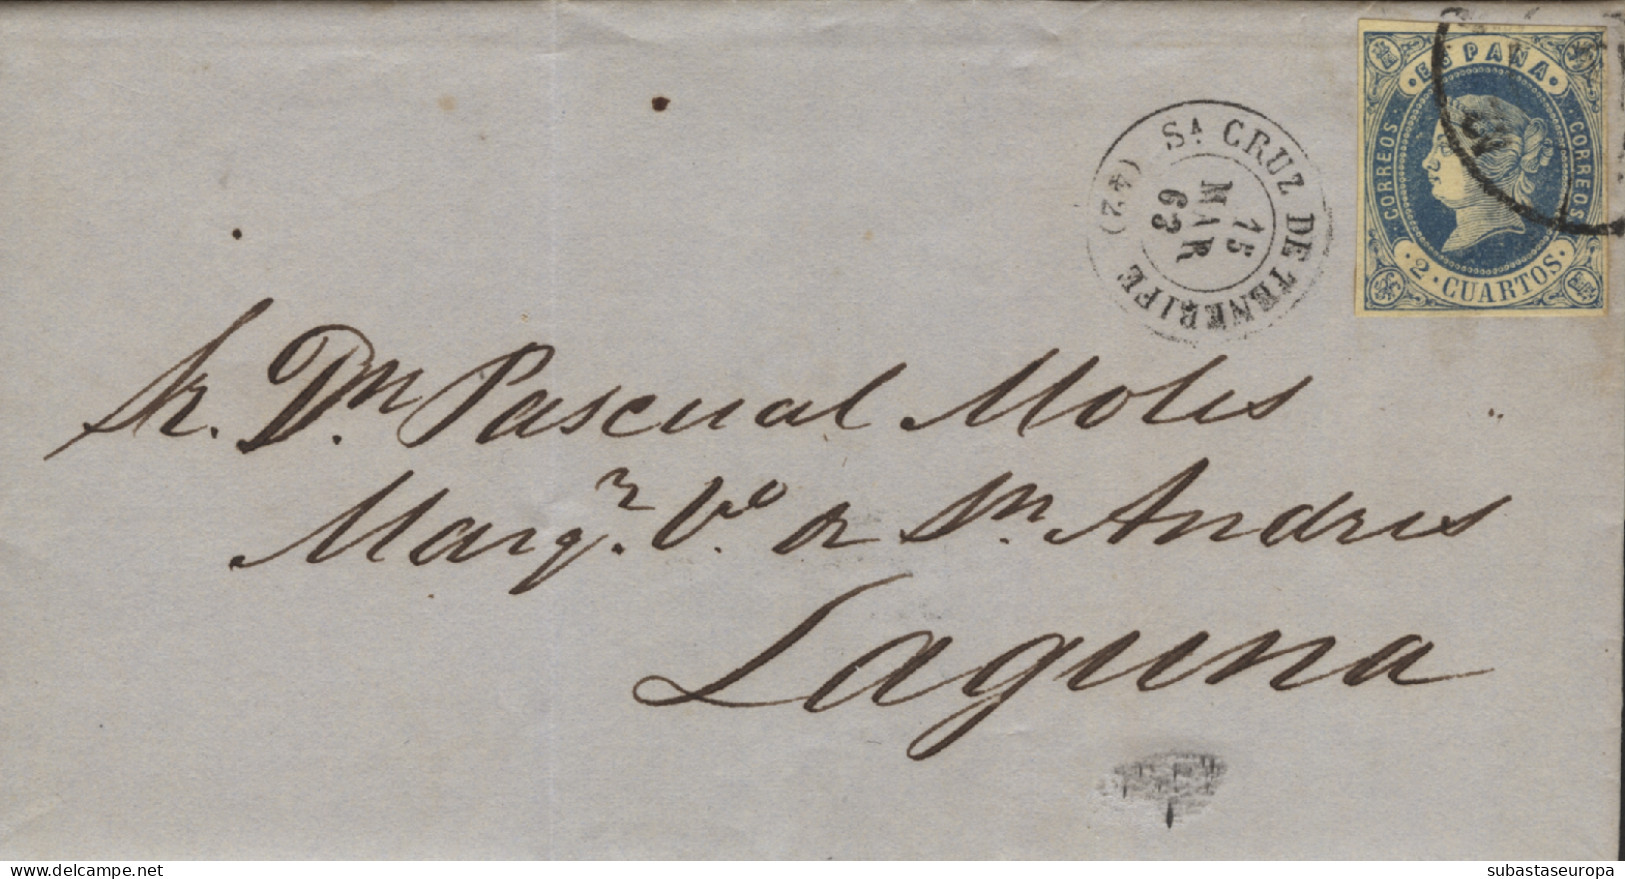 ESPAÑA
CORREOS
CORREOS
2 · CUARTOS
Sᴬ CRUZ DE TENERIFE (42)
15
MAR
63
Sr. Dn. Pascual Moles
Marqz. Vo. de Sn. Andres
Laguna
subastaseuropa